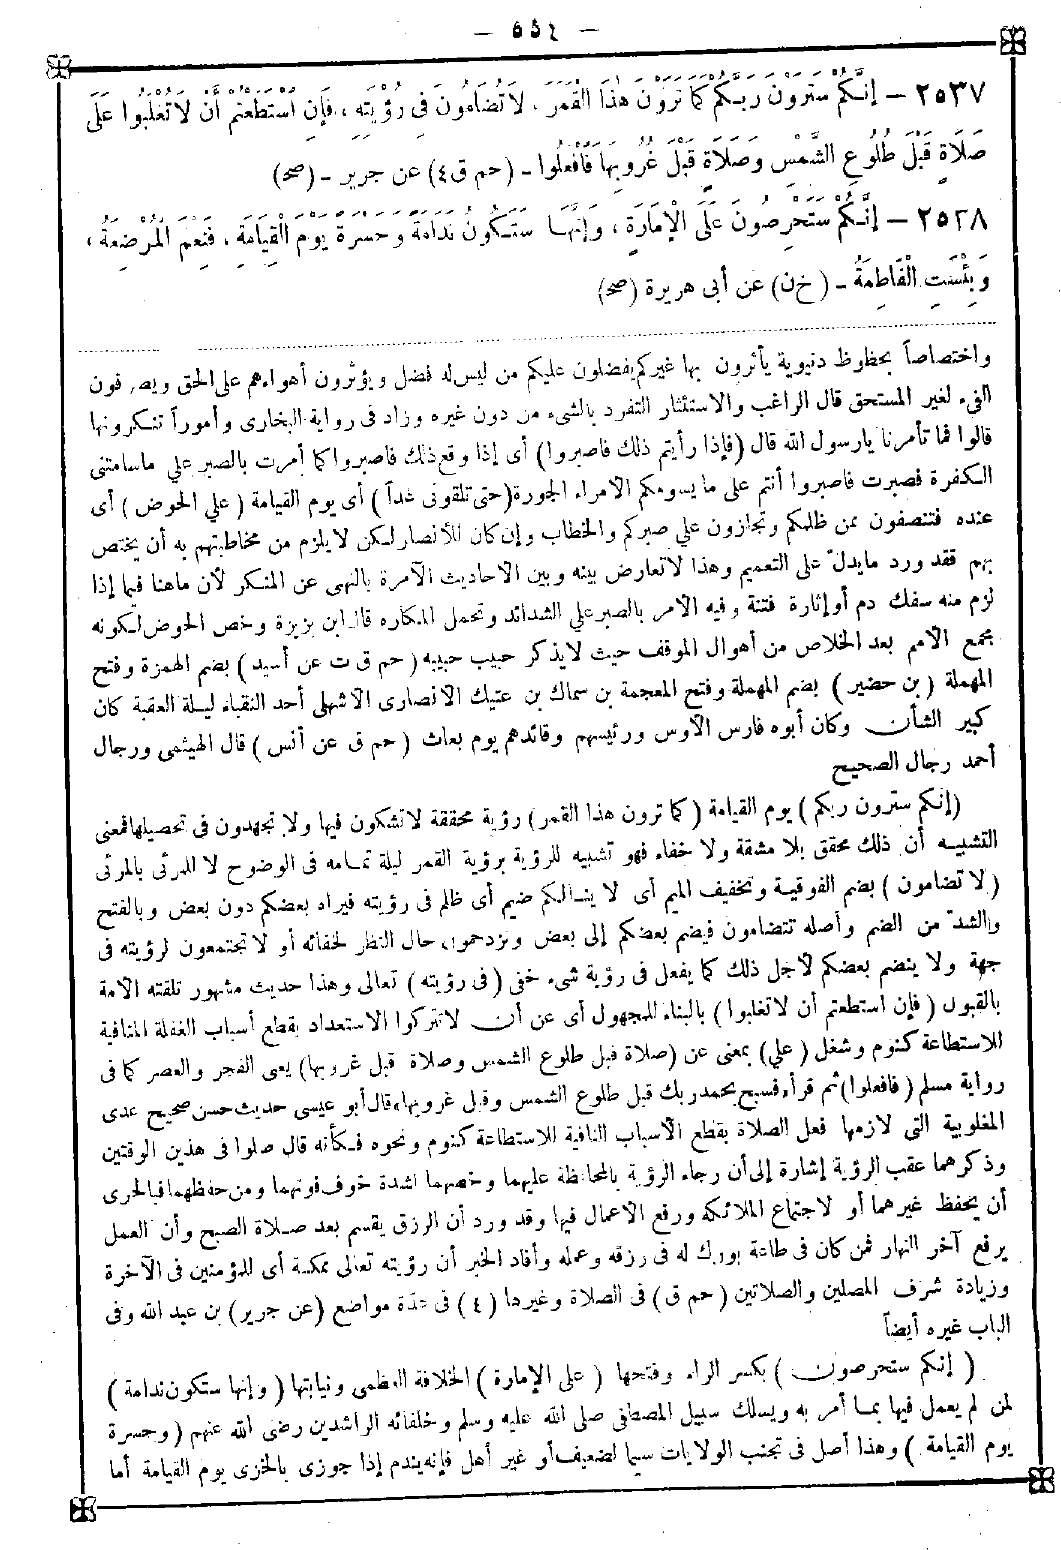 - ٥٥٤ -
٢٥٣٧ - إِنَّكُمْ سَتَرَوْنَ رَبَّكُمْ كَمَا تَرَوْنَ هٰذَا الْقَمَرَ ، لَا تُضَامُونَ فِي رُؤْيَتِهِ ، فَإِنِ اسْتَطَعْتُمْ أَنْ لَا تُغْلَبُوا عَلَى
صَلَاةٍ قَبْلَ طُلُوعِ الشَّمْسِ وَصَلَاةٍ قَبْلَ غُرُوبِهَا فَافْعَلُوا - (حم ق ٤) عن جرير - (صح)
٢٥٣٨ - إِنَّكُمْ سَتَحْرِصُونَ عَلَى الْإِمَارَةِ ، وَإِنَّهَا سَتَكُونُ نَدَامَةً وَحَسْرَةً يَوْمَ الْقِيَامَةِ ، فَنِعْمَ الْمُرْضِعَةُ ،
وَبِئْسَتِ الْفَاطِمَةُ - (خ ن) عن أبى هريرة (صح)
واختصاصاً بحظوظ دنيوية يأثرون بها غيركم يفضلون عليكم من ليس له فضل ويؤثرون أهواءهم على الحق ويصرفون
الفىء لغير المستحق قال الراغب والاستئثار التفرد بالشىء من دون غيره وزاد فى رواية البخارى وأموراً تنكرونها
قالوا فما تأمرنا يارسول الله قال (فإذا رأيتم ذلك فاصبروا) أى إذا وقع ذلك فاصبروا كما أمرت بالصبر على ماسامتنى
الكفرة فصبرت فاصبروا أنتم على ما يسومكم الامراء الجورة (حتى تلقونى غداً) أى يوم القيامة (على الحوض) أى
عنده فتنتصفون ممن ظلمكم وتجازون على صبركم والخطاب وإن كان للأنصار لكن لا يلزم من مخاطبتهم به أن يختص
بهم فقد ورد مايدلّ على التعميم وهذا لاتعارض بينه وبين الاحاديث الآمرة بالنهى عن المنكر لأن ماهنا فيما إذا
لزم منه سفك دم أو إثارة فتنة وفيه الأمر بالصبر على الشدائد وتحمل المكاره قال ابن بزيزة وخص الحوض لكونه
مجمع الأمم بعد الخلاص من أهوال الموقف حيث لا يذكر حبيب حبيبه (حم ق ت عن أسيد) بضم الهمزة وفتح
المهملة (بن حضير) بضم المهملة وفتح المعجمة بن سماك بن عتيك الأنصارى الأشهلى أحد النقباء ليلة العقبة كان
كبير الشأن وكان أبوه فارس الأوس ورئيسهم وقائدهم يوم بعاث (حم ق عن أنس) قال الهيثمى ورجال
أحمد رجال الصحيح
(إنكم سترون ربكم) يوم القيامة (كما ترون هذا القمر) رؤية محققة لاتشكون فيها ولا تجهدون فى تحصيلها فمعنى
التشبيه أن ذلك محقق بلا مشقة ولا خفاء فهو تشبيه للرؤية برؤية القمر ليلة تمامه فى الوضوح لا المرئى بالمرئى
(لا تضامون) بضم الفوقية وتخفيف الميم أى لا ينالكم ضيم أى ظلم فى رؤيته فيراه بعضكم دون بعض وبالفتح
والشدّ من الضم وأصله تتضامون فيضم بعضكم إلى بعض وتزدحمون حال النظر لخفائه أو لا تجتمعون لرؤيته فى
جهة ولا ينضم بعضكم لأجل ذلك كما يفعل فى رؤية شىء خفى (فى رؤيته) تعالى وهذا حديث مشهور تلقته الأمة
بالقبول (فإن استطعتم أن لاتغلبوا) بالبناء للمجهول أى عن أن لاتتركوا الاستعداد بقطع أسباب الغفلة المنافية
للاستطاعة كنوم وشغل (على) بمعنى عن (صلاة قبل طلوع الشمس وصلاة قبل غروبها) يعنى الفجر والعصر كما فى
رواية مسلم (فافعلوا) ثم قرأ ، فسبح بحمد ربك قبل طلوع الشمس وقبل غروبها ، قال أبو عيسى حديث حسن صحيح عدى
المغلوبية التى لازمها فعل الصلاة بقطع الأسباب النافية للاستطاعة كنوم ونحوه فكأنه قال صلوا فى هذين الوقتين
وذكرهما عقب الرؤية إشارة إلى أن رجاء الرؤية بالمحافظة عليهما وخصهما لشدة خوف فوتهما ومن حفظهما فبالحرى
أن يحفظ غيرهما أو لاجتماع الملائكة ورفع الأعمال فيها وقد ورد أن الرزق يقسم بعد صلاة الصبح وأن العمل
يرفع آخر النهار فمن كان فى طاعة بورك له فى رزقه وعمله وأفاد الخبر أن رؤيته تعالى ممكنة أى للمؤمنين فى الآخرة
وزيادة شرف المصلين والصلاتين (حم ق) فى الصلاة وغيرها (٤) فى عدة مواضع (عن جرير) بن عبد الله وفى
الباب غيره أيضاً
(إنكم ستحرصون) بكسر الراء وفتحها (على الإمارة) الخلافة العظمى ونيابتها (وإنها ستكون ندامة)
لمن لم يعمل فيها بما أمر به ويسلك سبيل المصطفى صلى الله عليه وسلم وخلفائه الراشدين رضى الله عنهم (وحسرة
يوم القيامة) وهذا أصل فى تجنب الولايات سيما لضعيف أو غير أهل فإنه يندم إذا جوزى بالخزى يوم القيامة أما